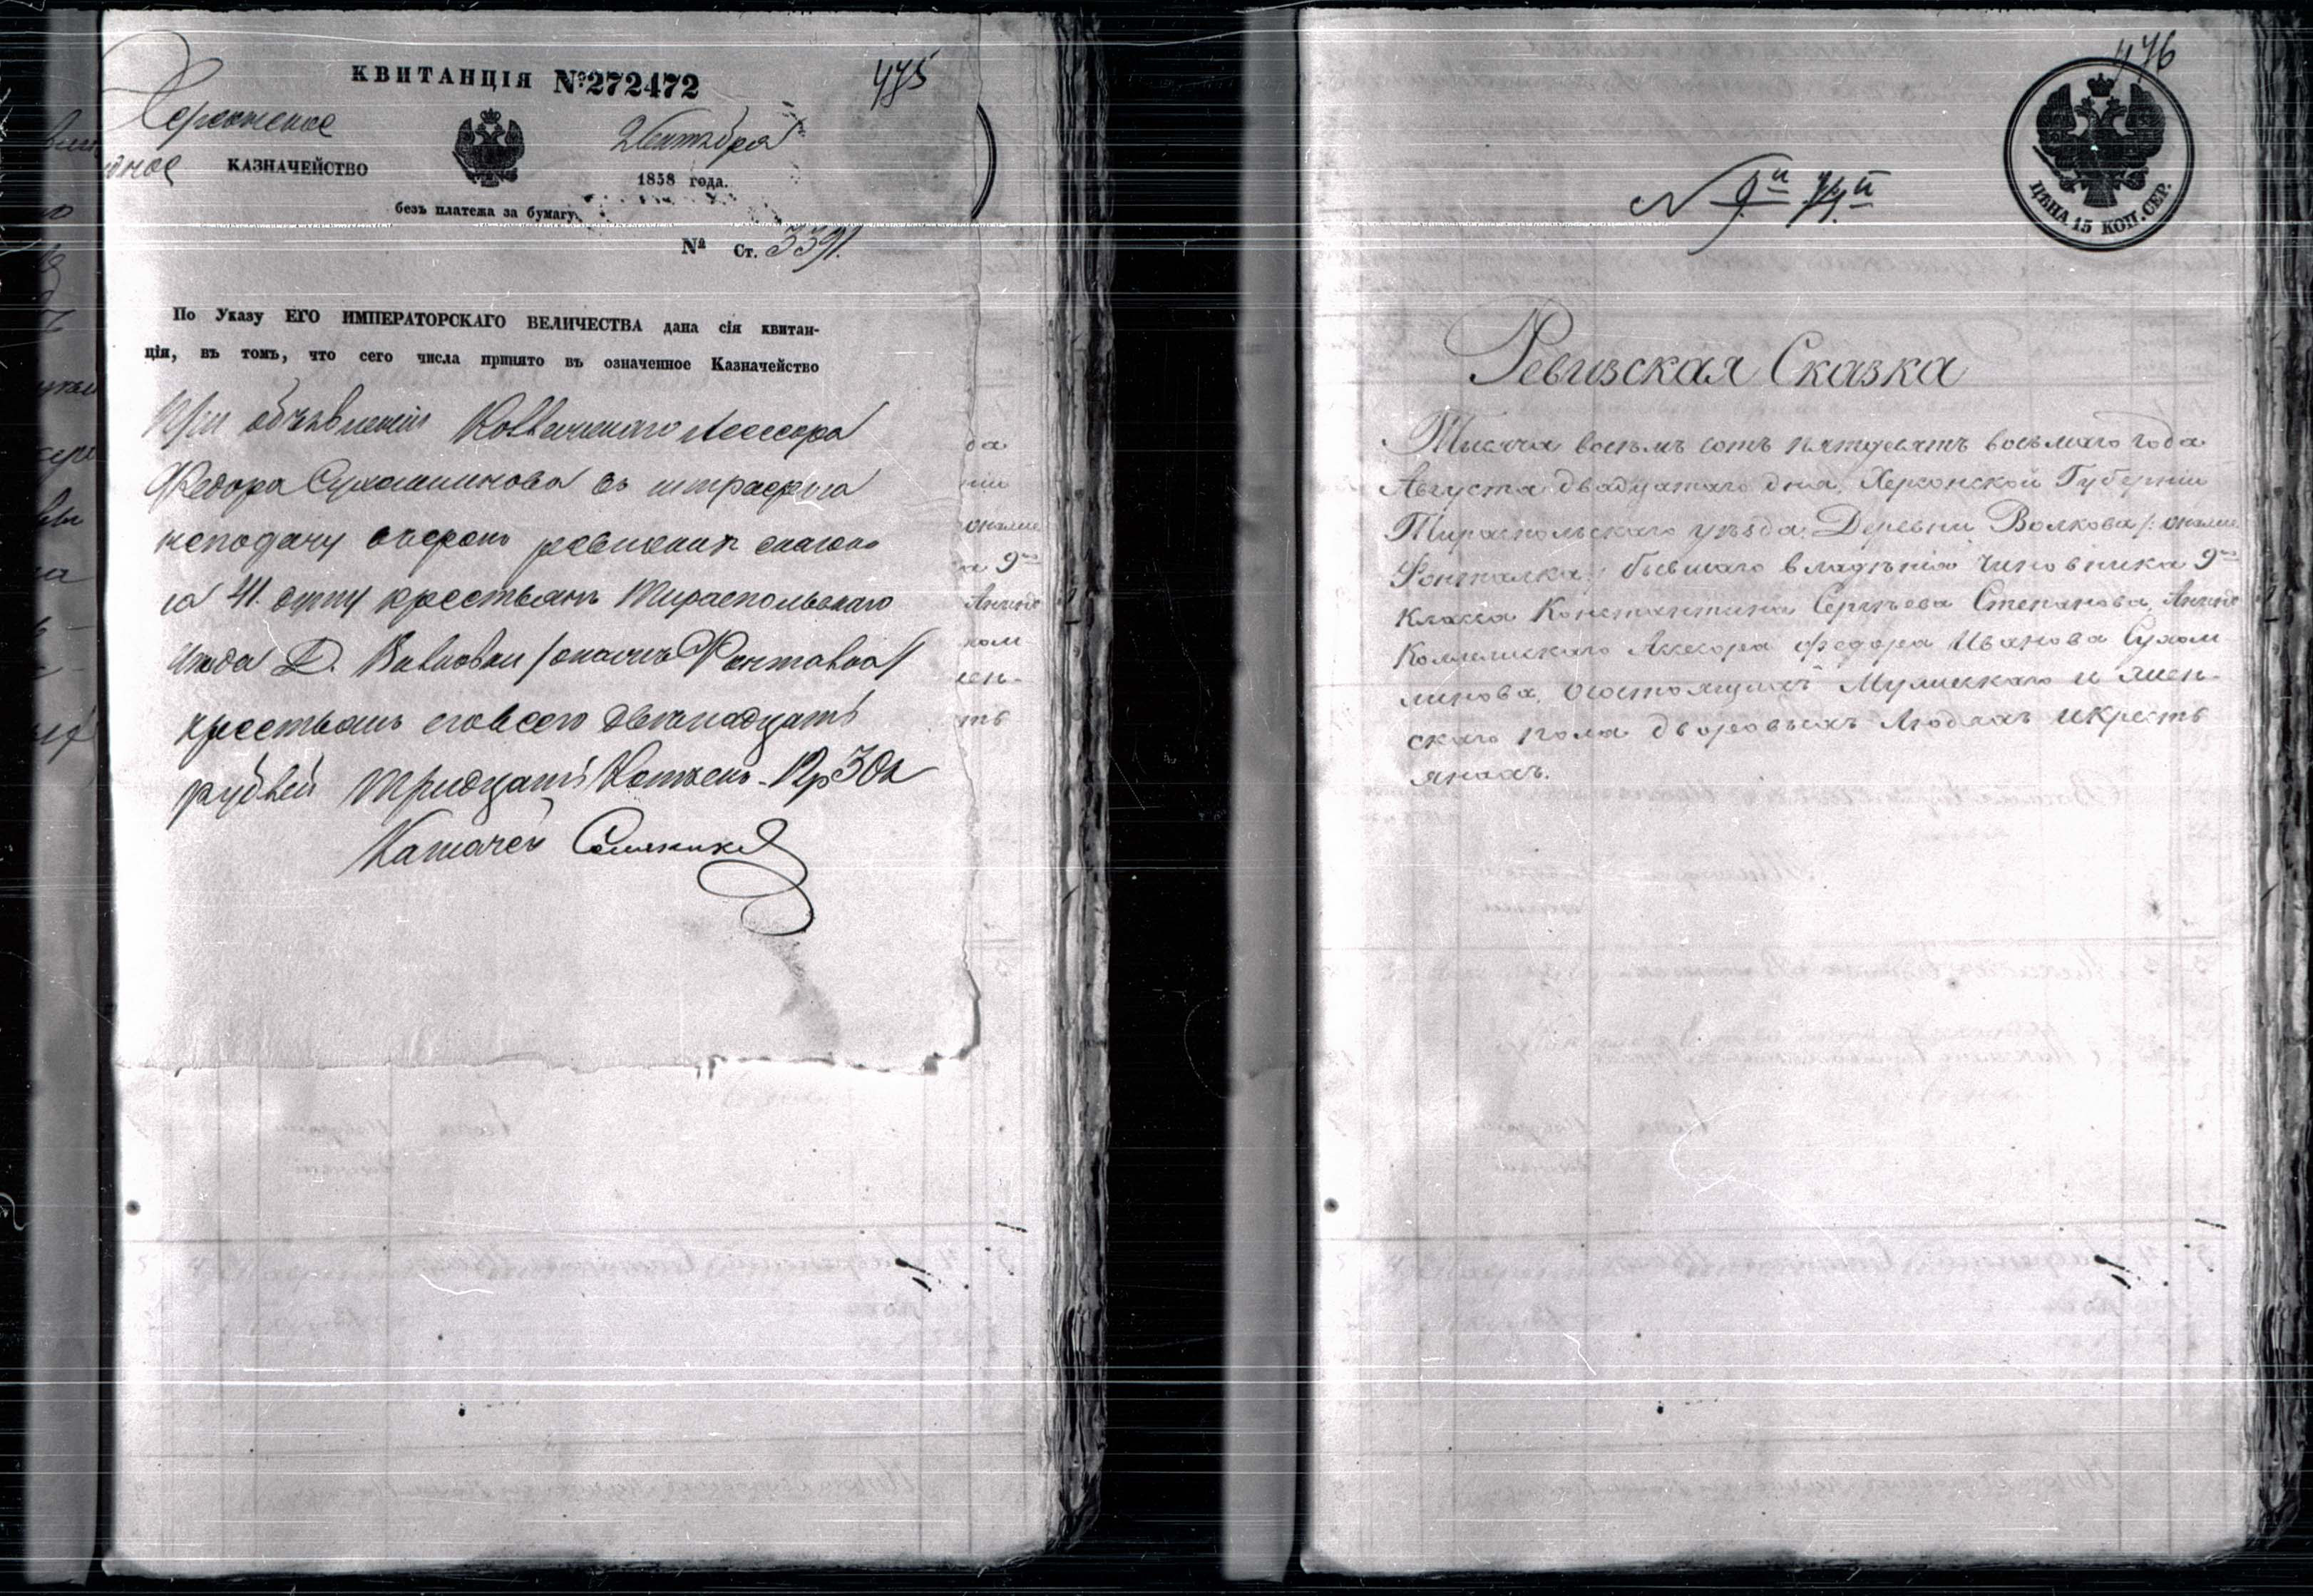 КВИТАНЦІЯ №272472
475
Херсонское
КАЗНАЧЕЙСТВО
Сентября
1858 года.
безъ платежа за бумагу.
№ Ст. 3391.
По Указу ЕГО ИМПЕРАТОРСКАГО ВЕЛИЧЕСТВА дана сія квитан-
ція, въ томъ, что сего числа принято въ означенное Казначейство
При объявленіи Коллежскаго Асессора
Федора Сухомлинова въ штрафъ за
неподачу въ срокъ ревизскихъ сказокъ
за 41 душу крестьянъ Тираспольскаго
уезда Д. Волковой /онаже Фонталка/
крестьянъ его всего двенадцать
рублей тридцать копѣекъ 12р 30к
Казначей
476
ЦѢНА 15 КОП. СЕР.
Ревизская Сказка
Тысяча восемь сотъ пятдесятъ восьмаго года
Августа двадцатаго дня, Херсонской Губерніи
Тираспольскаго уѣзда, Деревни Волкова /: онаже
Фонталка:/ бывшаго владѣнія чиновника 9го
класса Константина Сергѣева Степанова, Аныне
Коллежскаго Ассесора Федора Иванова Сухом
линова, Осостоящихъ Мужескаго и жен-
скаго пола дворовыхъ людяхъ икресть
янахъ.